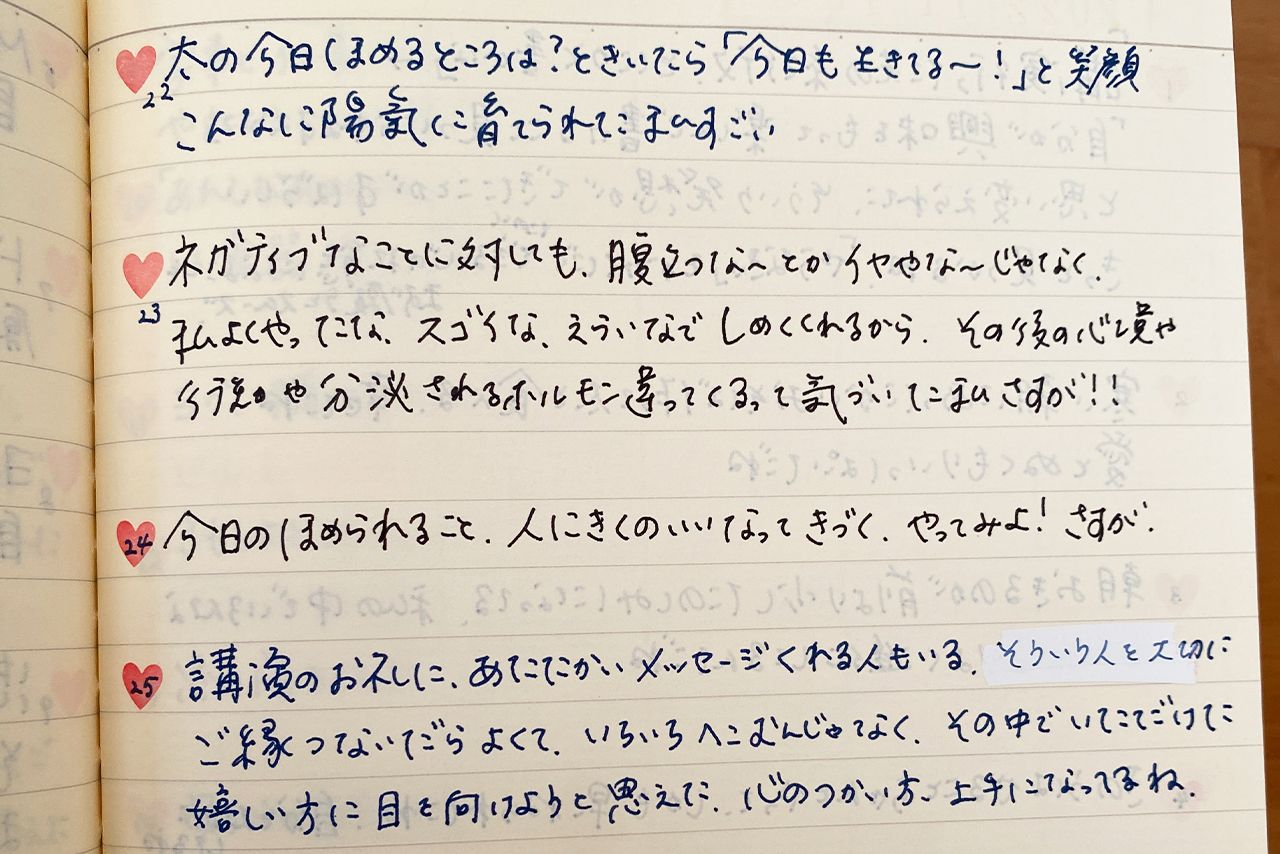 太の今日ほめるところは?ときいたら「今日も生きてる〜!」と笑顔
22
こんなに陽気に育てられてた私すごい
ネガティブなことに対しても、腹立つな〜とかイヤやな〜じゃなく、
23
私よくやってたな、スゴイな、えらいなでしめくくれるから、その後の心境や
行動や分泌されるホルモン違ってくるって気づいてた私さすが!!
24 今日のほめられること、人にきくのいいなってきづく、やってみよ!さすが、
25 講演のお礼に、あたたかいメッセージくれる人もいる、そういう人を大切に
ご縁つないだらよくて、いろいろへこむんじゃなく、その中でいただけた
嬉しい方に目を向けようと思えた、心のつかい方、上手になってるね、